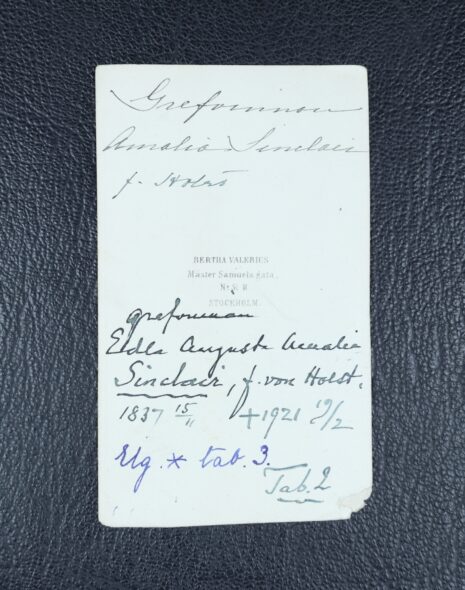 Grefvinnan
Amalia Sinclair
f. Holst
BERTHA VALERIUS
Mäster Samuels gata.
STOCKHOLM.
grefvinnan
Edla Augusta Amalia
Sinclair, f. von Holst.
1837 15/11 +1921 19/2
Elg. * tab. 3.
Tab. 2